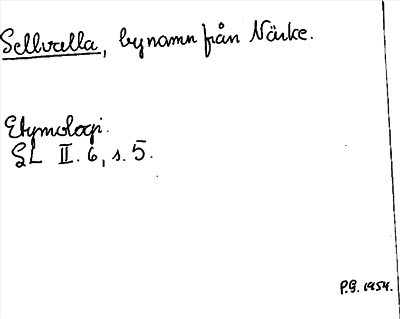 Sellvalla, bynamn från Närke.
Etymologi.
SL II. 6, s. 5.
P.G. 1954.